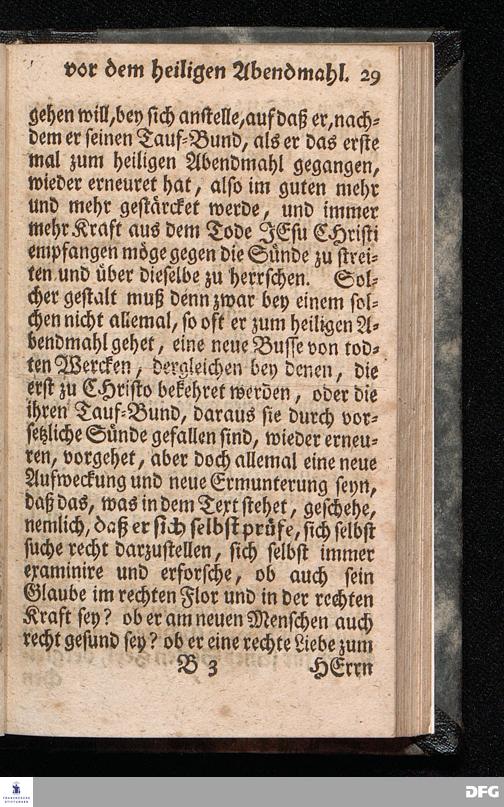 vor dem heiligen Abendmahl. 29
gehen will, bey sich anstelle, auf daß er, nach-
dem er seinen Tauf-Bund, als er das erste
mal zum heiligen Abendmahl gegangen,
wieder erneuret hat, also im guten mehr
und mehr gestärcket werde, und immer
mehr Kraft aus dem Tode JEsu CHristi
empfangen möge gegen die Sünde zu strei-
ten und über dieselbe zu herrschen. Sol-
cher gestalt muß denn zwar bey einem sol-
chen nicht allemal, so oft er zum heiligen A-
bendmahl gehet, eine neue Busse von tod-
ten Wercken, dergleichen bey denen, die
erst zu CHristo bekehret werden, oder die
ihren Tauf-Bund, daraus sie durch vor-
setzliche Sünde gefallen sind, wieder erneu-
ren, vorgehet, aber doch allemal eine neue
Aufweckung und neue Ermunterung seyn,
daß das, was in dem Text stehet, geschehe,
nemlich, daß er sich selbst prüfe, sich selbst
suche recht darzustellen, sich selbst immer
examinire und erforsche, ob auch sein
Glaube im rechten Flor und in der rechten
Kraft sey? ob er am neuen Menschen auch
recht gesund sey? ob er eine rechte Liebe zum
B 3 HErrn
FRANCKESCHE
STIFTUNGEN
DFG